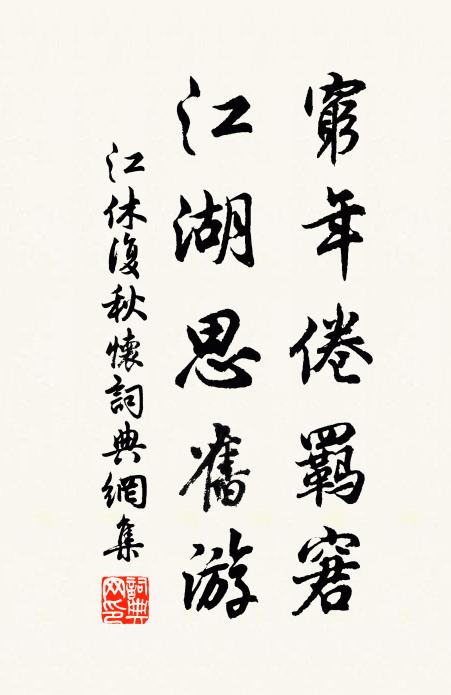 窮年倦羈窘
江湖思舊游
江休復秋懷詞典網集
詞典網印